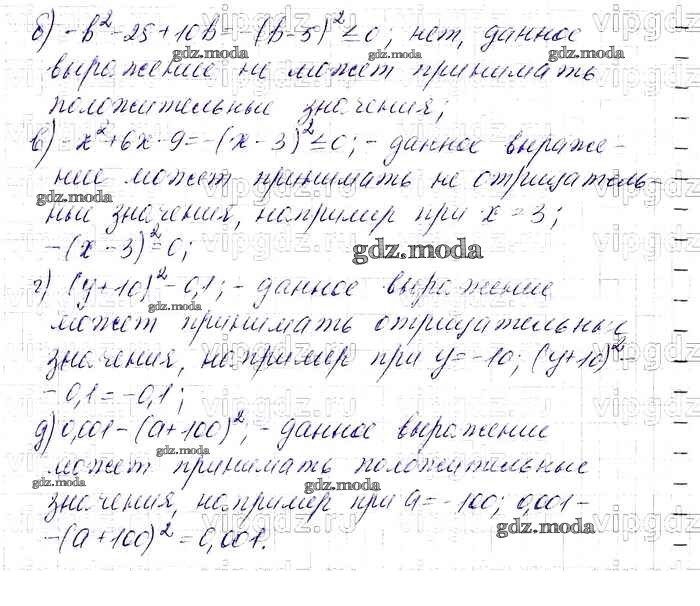 б) -b²-25+10b=-(b-5)²≤0; нет, данное
выражение не может принимать
положительные значения;
в) -x²+6x-9=-(x-3)²≤0; - данное выраже-
ние может принимать не отрицатель
ные значения, например при x=3;
-(x-3)²=0;
г) (y+10)²-0,1; - данное выражение
может принимать отрицательные
значения, например при y=-10; (y+10)²-
-0,1=-0,1;
д) 0,001-(a+100)²; - данное выражение
может принимать положительные
значения, например при a=-100; 0,001-
-(a+100)²=0,001.
gdz.moda
vipgdz.ru